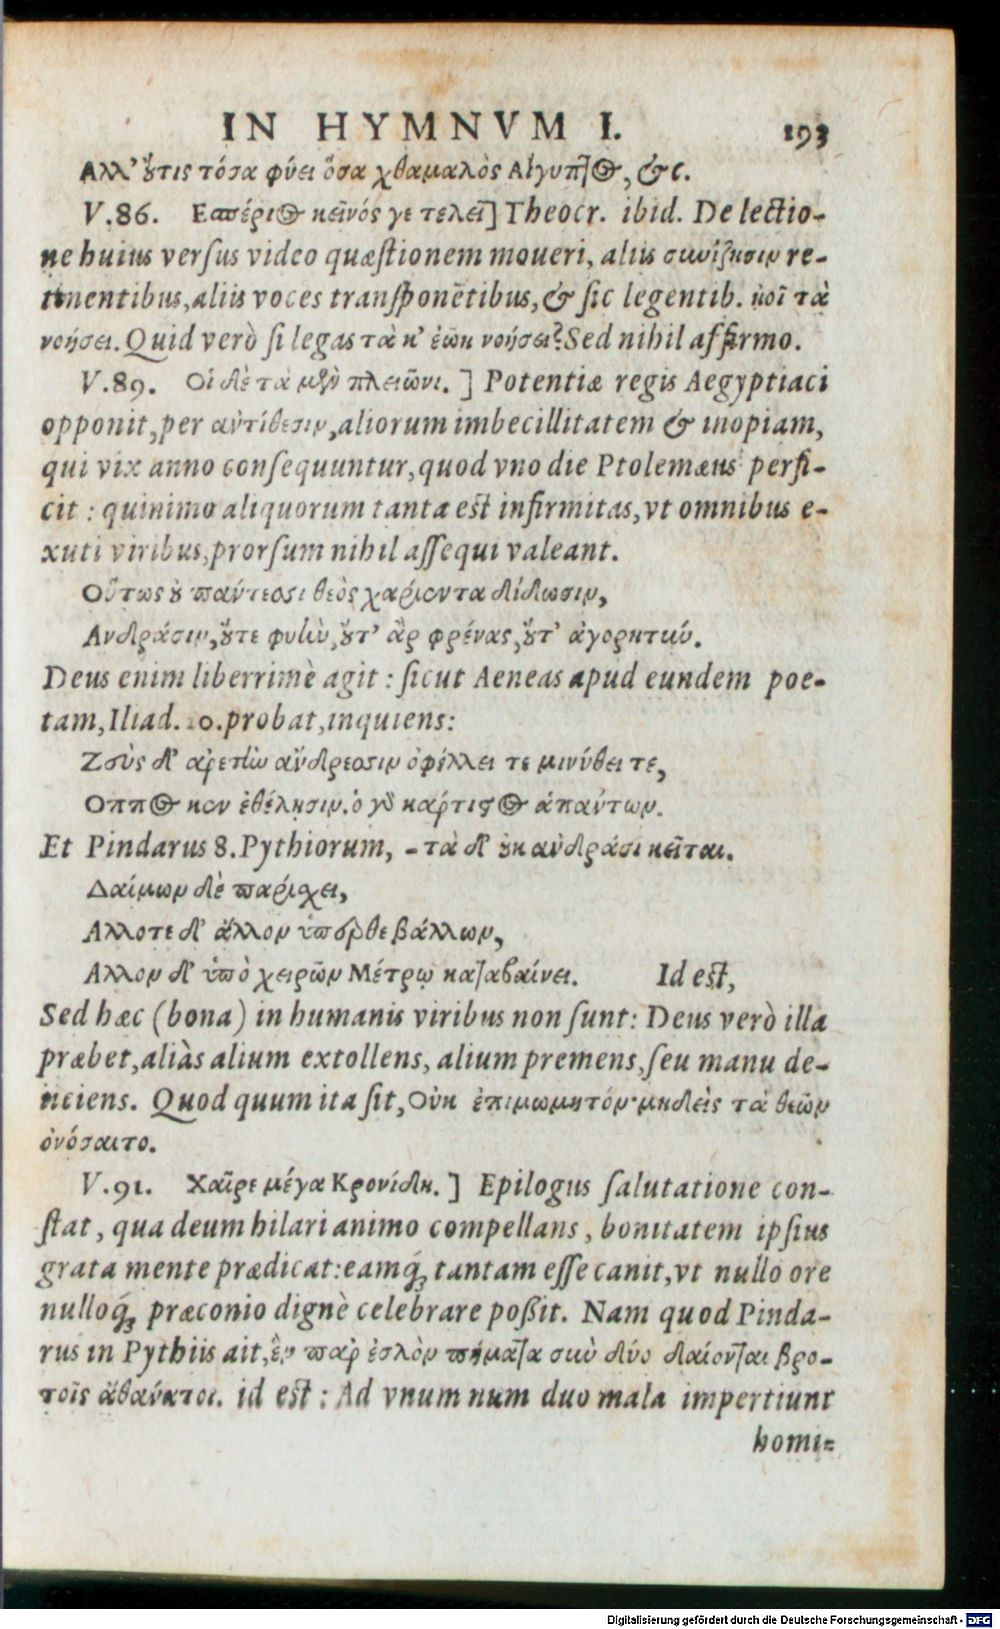 IN HYMNVM I. 193
Αλλ' ὄτις τόσα φύει ὅσα χθαμαλὸς Αἴγυπτος, &c.
V.86. Εσπέριος κεῖνός γε τελεῖ] Theocr. ibid. De lectio-
ne huius versus video quæstionem moueri, aliis συνίζησιν re-
tinentibus, aliis voces transponētibus, & sic legentib. κοῖ τὰ
νοήσει. Quid verò si legas τὰ κ' ἐῶκ νοήσει? Sed nihil affirmo.
V.89. Οἱ δὲ τὰ μὲν πλειῶνι.] Potentiæ regis Aegyptiaci
opponit, per αντίθεσιν, aliorum imbecillitatem & inopiam,
qui vix anno consequuntur, quod vno die Ptolemæus perfi-
cit : quinimo aliquorum tanta est infirmitas, vt omnibus e-
xuti viribus, prorsum nihil assequi valeant.
Οὕτως ȣ πάντεσσι θεὸς χαρίεντα δίδωσιν,
Ανδράσιν, ȣ̓́τε φυὴν, ȣ̓́τ' ἂρ φρένας, ȣ̓́τ' ἀγορητύν.
Deus enim liberrimè agit : sicut Aeneas apud eundem poe-
tam, Iliad. 20. probat, inquiens:
Ζεὺς δ' αρετὴν ἄνδρεσσιν ὀφέλλει τε μινύθει τε,
Οππος κεν ἐθέλησιν. ὁ γδ κάρτιςος ἁπάντων.
Et Pindarus 8. Pythiorum, - τὰ δ' ȣκ ανδράσι κεῖται.
Δαίμων δὲ παρίχει,
Αλλοτε δ' ἄλλον ὕπερθε βάλλων,
Αλλον δ' ὑπὸ χειρῶν Μέτρῳ καταβαίνει. Id est,
Sed hæc (bona) in humanis viribus non sunt: Deus verò illa
præbet, aliàs alium extollens, alium premens, seu manu de-
iiciens. Quod quum ita sit, Οὐκ ἐπιμωμητόν· μηδεὶς τὰ θεῶν
ὀνόσαιτο.
V.91. Χαῖρε μέγα Κρονίδη.] Epilogus salutatione con-
stat, qua deum hilari animo compellans, bonitatem ipsius
grata mente prædicat: eamq́; tantam esse canit, vt nullo ore
nulloq́; præconio dignè celebrare poßit. Nam quod Pinda-
rus in Pythiis ait, ἓν παρ ἐσλὸν πήματα σιὼ δύο δαίονται βρο-
τοῖς ἀθανατοι. id est : Ad vnum num duo mala impertiunt
homi-
Digitalisierung gefördert durch die Deutsche Forschungsgemeinschaft - DFG